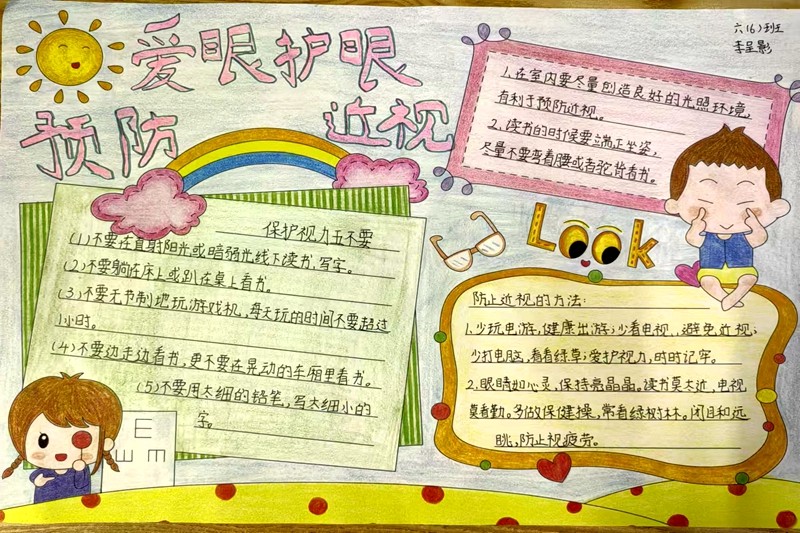 爱眼护眼
预防近视
六(6)班
李呈影
1.在室内要尽量创造良好的光照环境,
有利于预防近视。
2.读书的时候要端正坐姿,
尽量不要弯着腰或者驼背看书。
保护视力五不要
(1)不要在直射阳光或暗弱光线下读书、写字。
(2)不要躺在床上或趴在桌上看书。
(3)不要无节制地玩游戏机,每天玩的时间不要超过
1小时。
(4)不要边走边看书,更不要在晃动的车厢里看书。
(5)不要用太细的铅笔,写太细小的
字。
Look
防止近视的方法:
1.少玩电游,健康出游;少看电视,避免近视;
少打电脑,看看绿草;爱护视力,时时记牢。
2.眼睛如心灵,保持亮晶晶。读书莫太近,电视
莫看勤。多做保健操,常看绿树林。闭目和远
眺,防止视疲劳。
E
Ш m